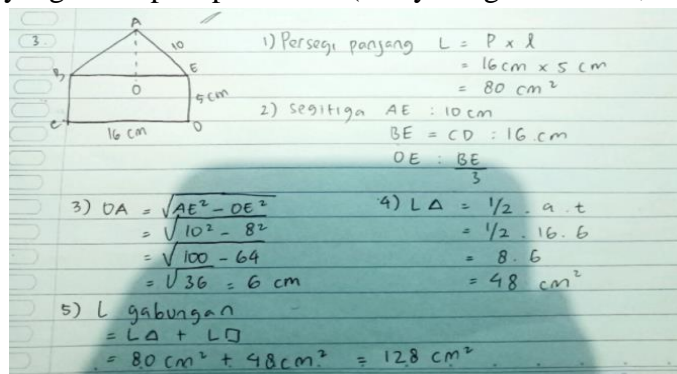 3.
A
10
B
E
O
5 cm
C
16 cm
D
1) Persegi panjang L = P x l
= 16 cm x 5 cm
= 80 cm²
2) Segitiga AE : 10 cm
BE = CD : 16 cm
OE : BE/3
3) OA = √AE² - OE²
= √10² - 8²
= √100 - 64
= √36 = 6 cm
4) L △ = 1/2 . a . t
= 1/2 . 16 . 6
= 8 . 6
= 48 cm²
5) L gabungan
= L△ + L□
= 80 cm² + 48 cm² = 128 cm²